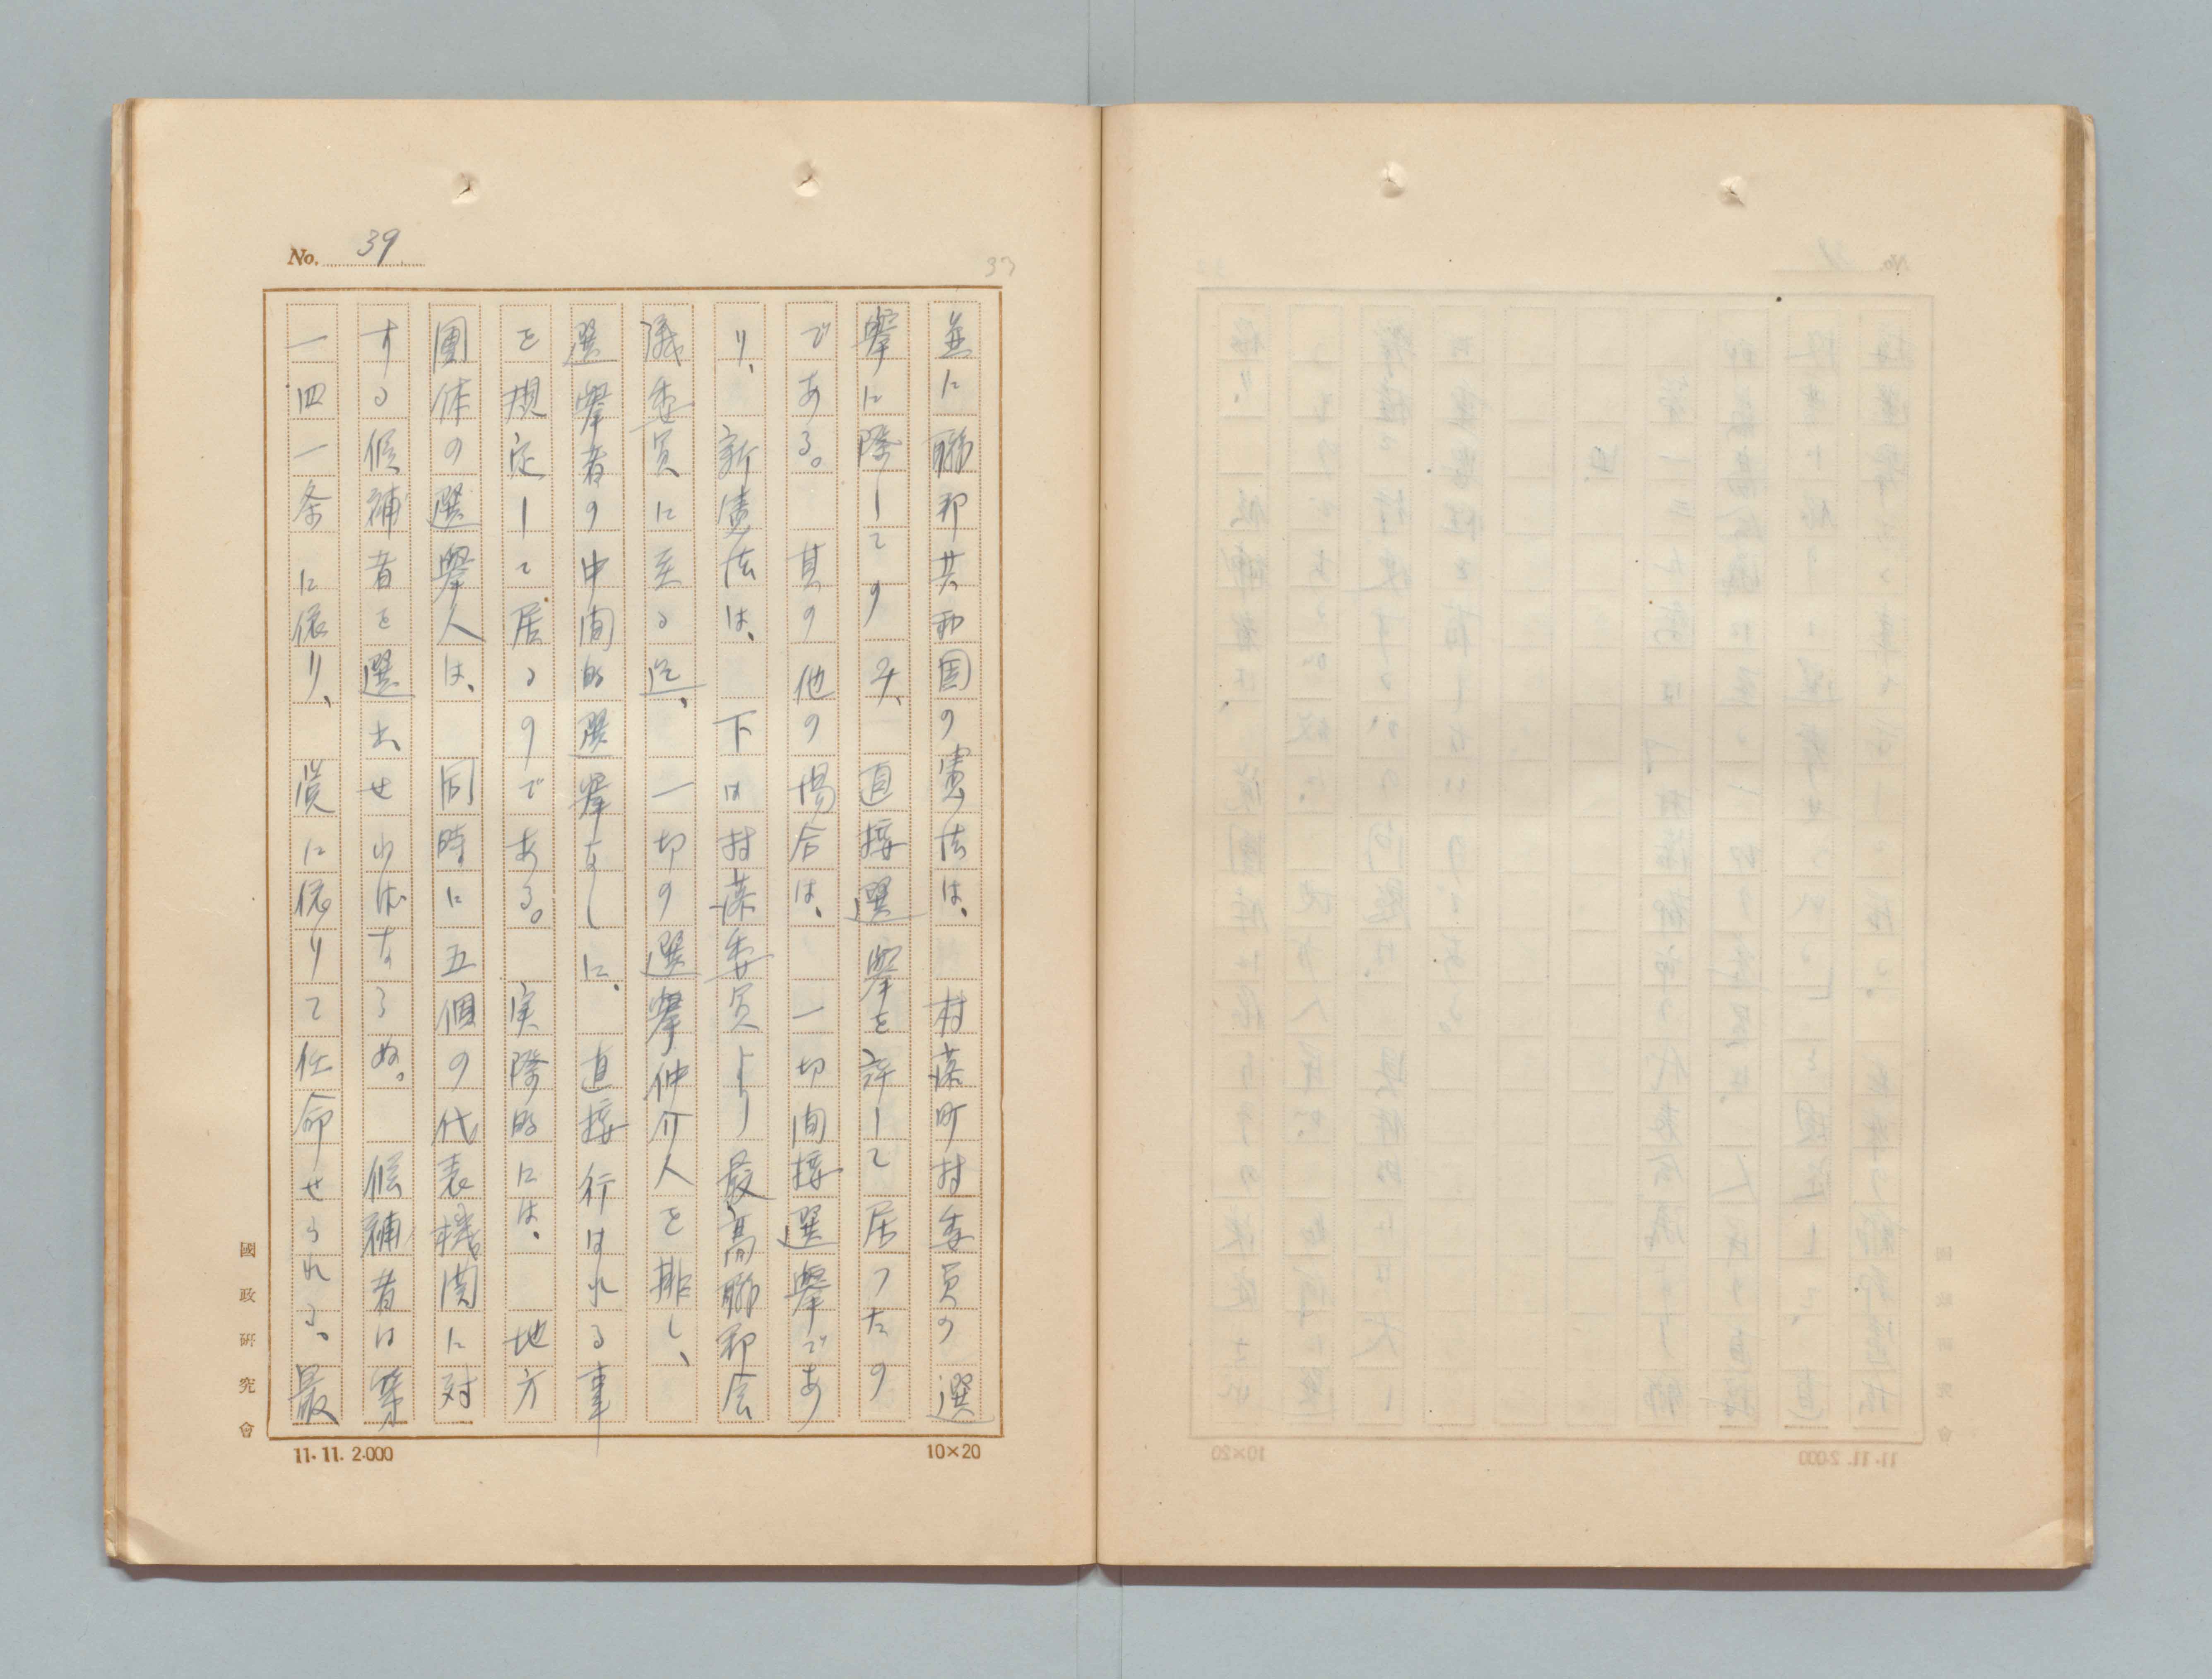 No. 39
33
並に聯邦共和国の憲法は、村落町村委員の選
挙に際してのみ、直接選挙を許して居つたの
である。其の他の場合は、一切間接選挙であ
り、新憲法は、下は村落委員より最高聯邦会
議委員に至る迄、一切の選挙仲介人を排し、
選挙者の中間的選挙なしに、直接行はれる事
を規定して居るのである。実際的には、地方
團体の選挙人は、同時に五個の代表機関に対
する候補者を選出せねばならぬ。候補者は第
一四一条に依り、黨に依りて任命せられる、最
國政研究會
11.11.2.000
10×20